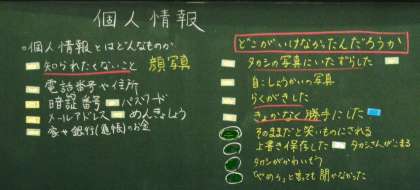 個人情報
○個人情報とはどんなものか
知られたくないこと 顔写真
電話番号や住所
暗証番号 パスワード
メールアドレス めんきょしょう
家や銀行(通帳)のお金
どこがいけなかったんだろうか
タカシの写真にいたずらした
自こしょうかいの写真
らくがきした
きょかなく勝手にした
そのままだと笑いものにされる
上書き保存した タカシさんがこまる
タカシがかわいそう
「やめろ」と言っても聞かなかった